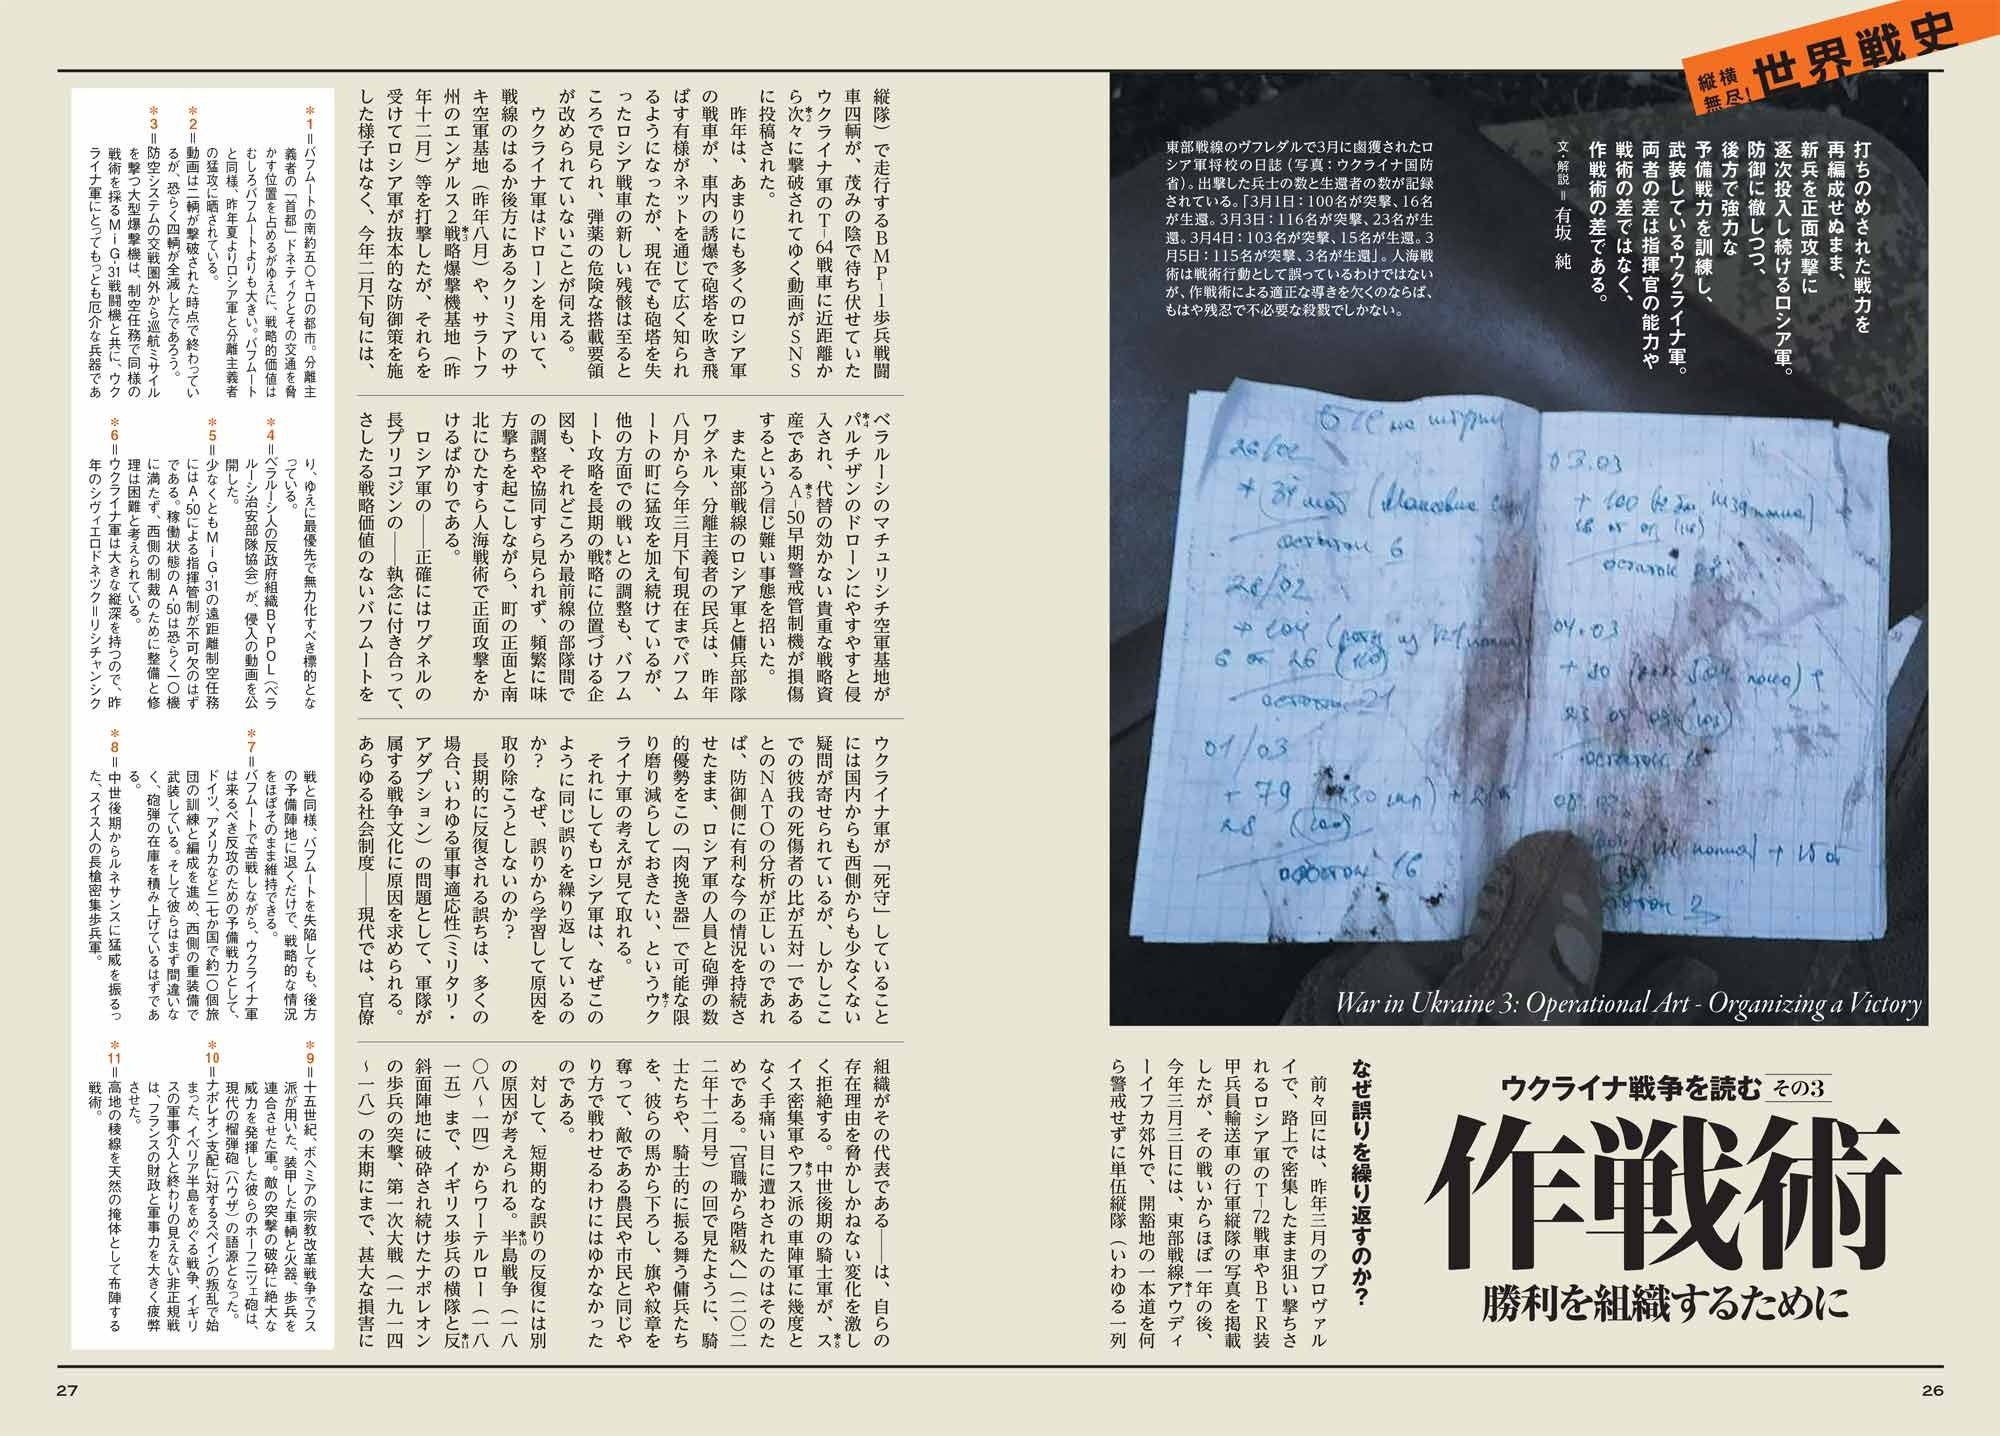 縦横
無尽!
世界戦史
打ちのめされた戦力を
再編成せぬまま、
新兵を正面攻撃に
逐次投入し続けるロシア軍。
防御に徹しつつ、
後方で強力な
予備戦力を訓練し、
武装しているウクライナ軍。
両者の差は指揮官の能力や
戦術の差ではなく、
作戦術の差である。
文・解説=有坂 純
東部戦線のヴフレダルで3月に鹵獲されたロ
シア軍将校の日誌(写真:ウクライナ国防
省)。出撃した兵士の数と生還者の数が記録
されている。「3月1日:100名が突撃、16名
が生還。3月3日:116名が突撃、23名が生
還。3月4日:103名が突撃、15名が生還。3
月5日:115名が突撃、3名が生還」。人海戦
術は戦術行動として誤っているわけではない
が、作戦術による適正な導きを欠くのならば、
もはや残忍で不必要な殺戮でしかない。
26/02
остаток 6
28/02
01/03
+ 79
остаток 16
03.03
04.03
War in Ukraine 3: Operational Art - Organizing a Victory
ウクライナ戦争を読む その3
作戦術
勝利を組織するために
なぜ誤りを繰り返すのか?
前々回には、昨年三月のブロヴァル
イで、路上で密集したまま狙い撃ちさ
れるロシア軍のT-72戦車やBTR装
甲兵員輸送車の行軍縦隊の写真を掲載
したが、その戦いからほぼ一年の後、
今年三月三日には、東部戦線アウディ*1
ーイフカ郊外で、開豁地の一本道を何
ら警戒せずに単伍縦隊(いわゆる一列
縦隊)で走行するBMP-1歩兵戦闘
車四輌が、茂みの陰で待ち伏せていた
ウクライナ軍のT-64戦車に近距離か
ら次々に撃破されてゆく動画がSNS*2
に投稿された。
昨年は、あまりにも多くのロシア軍
の戦車が、車内の誘爆で砲塔を吹き飛
ばす有様がネットを通じて広く知られ
るようになったが、現在でも砲塔を失
ったロシア戦車の新しい残骸は至ると
ころで見られ、弾薬の危険な搭載要領
が改められていないことが伺える。
ウクライナ軍はドローンを用いて、
戦線のはるか後方にあるクリミアのサ
キ空軍基地(昨年八月)や、サラトフ
州のエンゲルス2戦略爆撃機基地(昨*3
年十二月)等を打撃したが、それらを
受けてロシア軍が抜本的な防御策を施
した様子はなく、今年二月下旬には、
ベラルーシのマチュリシチ空軍基地が
パルチザンのドローンにやすやすと侵*4
入され、代替の効かない貴重な戦略資
産であるA-50早期警戒管制機が損傷*5
するという信じ難い事態を招いた。
また東部戦線のロシア軍と傭兵部隊
ワグネル、分離主義者の民兵は、昨年
八月から今年三月下旬現在までバフム
ートの町に猛攻を加え続けているが、
他の方面での戦いとの調整も、バフム
ート攻略を長期の戦略に位置づける企*6
図も、それどころか最前線の部隊間で
の調整や協同すら見られず、頻繁に味
方撃ちを起こしながら、町の正面と南
北にひたすら人海戦術で正面攻撃をか
けるばかりである。
ロシア軍の――正確にはワグネルの
長プリコジンの――執念に付き合って、
さしたる戦略価値のないバフムートを
ウクライナ軍が「死守」していること
には国内からも西側からも少なくない
疑問が寄せられているが、しかしここ
での彼我の死傷者の比が五対一である
とのNATOの分析が正しいのであれ
ば、防御側に有利な今の情況を持続さ
せたまま、ロシア軍の人員と砲弾の数
的優勢をこの「肉挽き器」で可能な限
り磨り減らしておきたい、というウク*7
ライナ軍の考えが見て取れる。
それにしてもロシア軍は、なぜこの
ように同じ誤りを繰り返しているの
か? なぜ、誤りから学習して原因を
取り除こうとしないのか?
長期的に反復される誤ちは、多くの
場合、いわゆる軍事適応性(ミリタリ・
アダプション)の問題として、軍隊が
属する戦争文化に原因を求められる。
あらゆる社会制度――現代では、官僚
組織がその代表である――は、自らの
存在理由を脅かしかねない変化を激し
く拒絶する。中世後期の騎士軍が、ス*8
イス密集軍やフス派の車陣軍に幾度と*9
なく手痛い目に遭わされたのはそのた
めである。「官職から階級へ」(二〇二
二年十二月号)の回で見たように、騎
士たちや、騎士的に振る舞う傭兵たち
を、彼らの馬から下ろし、旗や紋章を
奪って、敵である農民や市民と同じや
り方で戦わせるわけにはゆかなかった
のである。
対して、短期的な誤りの反復には別
の原因が考えられる。半島戦争(一八*10
〇八~一四)からワーテルロー(一八
一五)まで、イギリス歩兵の横隊と反*11
斜面陣地に破砕され続けたナポレオン
の歩兵の突撃、第一次大戦(一九一四
~一八)の末期にまで、甚大な損害に
*1=バフムートの南約五〇キロの都市。分離主
義者の「首都」ドネティクとその交通を脅
かす位置を占めるがゆえに、戦略的価値は
むしろバフムートよりも大きい。バフムート
と同様、昨年夏よりロシア軍と分離主義者
の猛攻に晒されている。
*2=動画は二輌が撃破された時点で終わってい
るが、恐らく四輌が全滅したであろう。
*3=防空システムの交戦圏外から巡航ミサイル
を撃つ大型爆撃機は、制空任務で同様の
戦術を採るMiG-31戦闘機と共に、ウク
ライナ軍にとってもっとも厄介な兵器であ
り、ゆえに最優先で無力化すべき標的とな
っている。
*4=ベラルーシ人の反政府組織BYPOL(ベラ
ルーシ治安部隊協会)が、侵入の動画を公
開した。
*5=少なくともMiG-31の遠距離制空任務
にはA-50による指揮管制が不可欠のはず
である。稼働状態のA-50は恐らく一〇機
に満たず、西側の制裁のために整備と修
理は困難と考えられている。
*6=ウクライナ軍は大きな縦深を持つので、昨
年のシヴィエロドネツク=リシチャンシク
戦と同様、バフムートを失陥しても、後方
の予備陣地に退くだけで、戦略的な情況
をほぼそのまま維持できる。
*7=バフムートで苦戦しながら、ウクライナ軍
は来るべき反攻のための予備戦力として、
ドイツ、アメリカなど二七か国で約一〇個旅
団の訓練と編成を進め、西側の重装備で
武装している。そして彼らはまず間違いな
く、砲弾の在庫を積み上げているはずであ
る。
*8=中世後期からルネサンスに猛威を振るっ
た、スイス人の長槍密集歩兵軍。
*9=十五世紀、ボヘミアの宗教改革戦争でフス
派が用いた、装甲した車輌と火器、歩兵を
連合させた軍。敵の突撃の破砕に絶大な
威力を発揮した彼らのホーフニツェ砲は、
現代の榴弾砲(ハウザ)の語源となった。
*10=ナポレオン支配に対するスペインの叛乱で始
まった、イベリア半島をめぐる戦争。イギリ
スの軍事介入と終わりの見えない非正規戦
は、フランスの財政と軍事力を大きく疲弊
させた。
*11=高地の稜線を天然の掩体として布陣する
戦術。
27
26